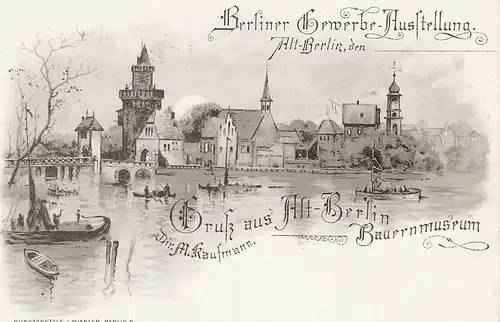 Berliner Gewerbe-Ausstellung.
Alt-Berlin, den
Gruß aus Alt-Berlin
Bauernmuseum
Dir. M. Kaufmann.
KUNSTANSTALT J. MIESLER, BERLIN S.